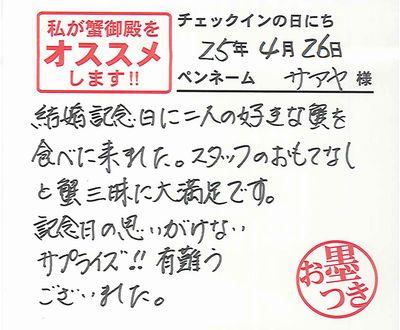 私が蟹御殿を
オススメ
します!!
チェックインの日にち
25年4月26日
ペンネーム サアヤ 様
結婚記念日に二人の好きな蟹を
食べに来れました。スタッフのおもてなし
と蟹三昧に大満足です。
記念日の思いがけない
サプライズ!! 有難う
ございました。
お墨
つき